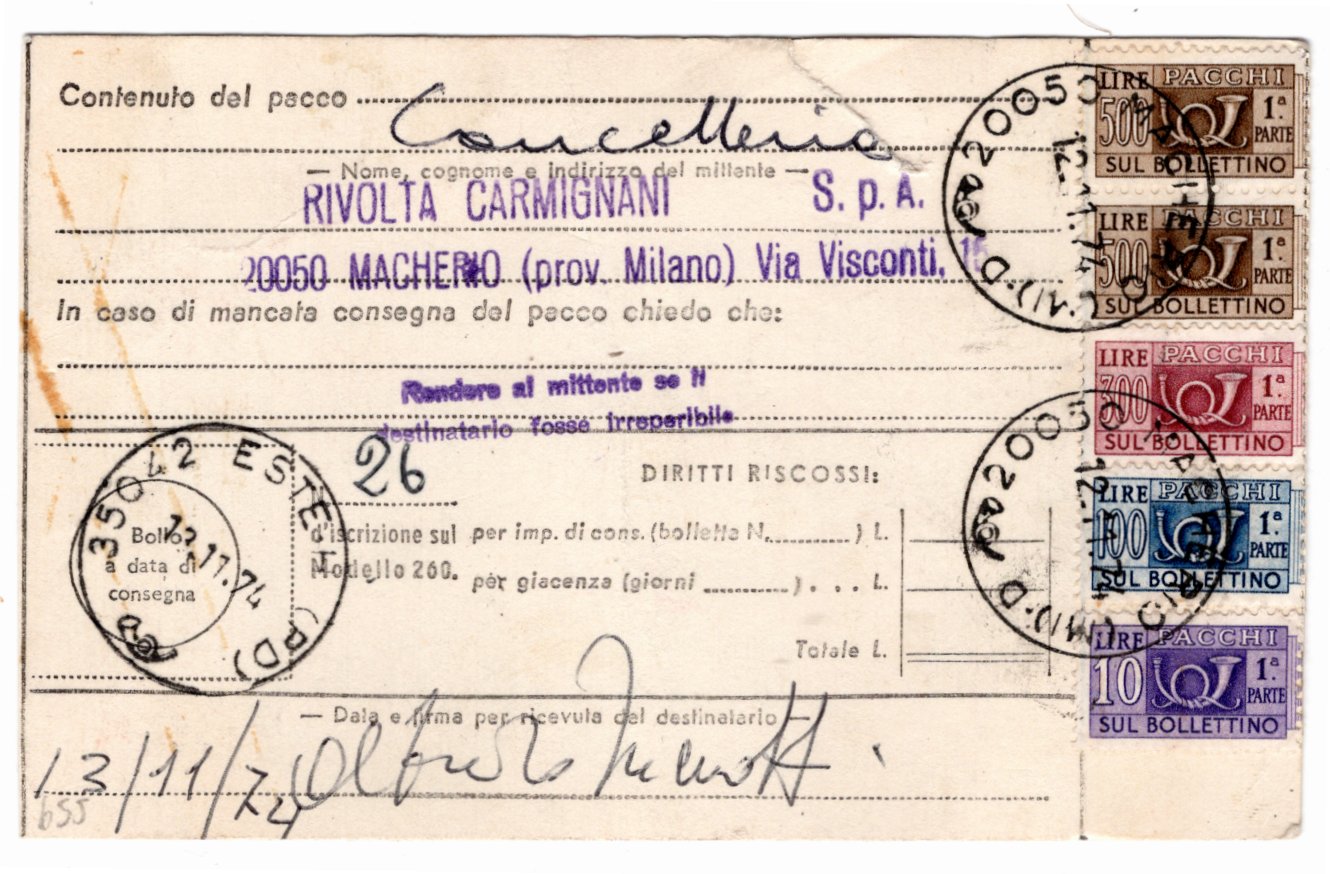 Contenuto del pacco Cancelleria
— Nome, cognome e indirizzo del mittente —
RIVOLTA CARMIGNANI S.p.A.
20050 MACHERIO (prov. Milano) Via Visconti, 15
In caso di mancata consegna del pacco chiedo che:
Rendere al mittente se il
destinatario fosse irreperibile
26
DIRITTI RISCOSSI:
d'iscrizione sul
Modello 260.
per imp. di cons. (bolletta N. ) L.
per giacenza (giorni ) . . . L.
Totale L.
Bollo
a data di
consegna
35042 ESTE (PD)
13.11.74
— Data e firma per ricevuta del destinatario —
13/11/74 Alfredo
655
LIRE PACCHI
500 1ª PARTE
SUL BOLLETTINO
LIRE PACCHI
500 1ª PARTE
SUL BOLLETTINO
LIRE PACCHI
300 1ª PARTE
SUL BOLLETTINO
LIRE PACCHI
100 1ª PARTE
SUL BOLLETTINO
LIRE PACCHI
10 1ª PARTE
SUL BOLLETTINO
20050 MACHERIO (MI)·D
12.11.74
20050 MACHERIO (MI)·D
12.11.74